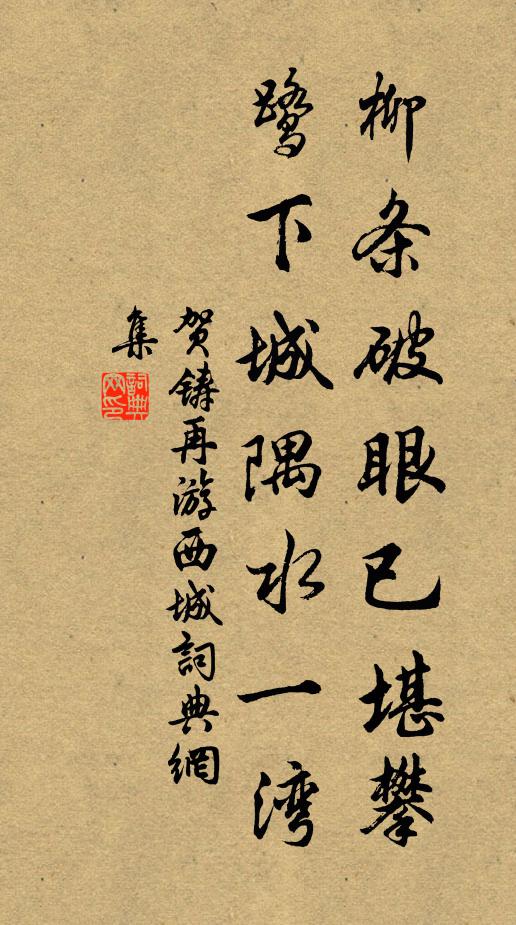 柳条破眼已堪攀
鹭下城隅水一湾
贺铸再游西城詞典網
集
詞典網印